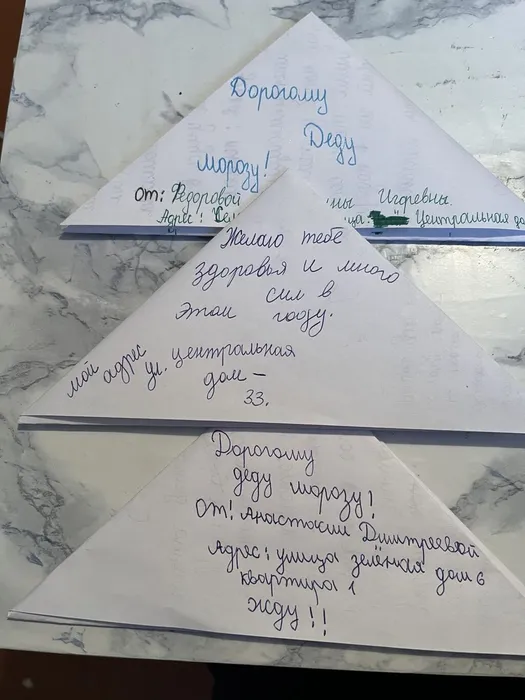 Дорогому
Деду
Морозу!
От: Федоровой ны Игоревны.
Адрес: ца: Центральная до
Желаю тебе
здоровья и много
сил в
этом году.
мой адрес
ул. центральная
дом -
33.
Дорогому
деду морозу!
От! Анастасии Дмитреевой
Адрес: улица зелёная дом 6
квартира 1
жду!!